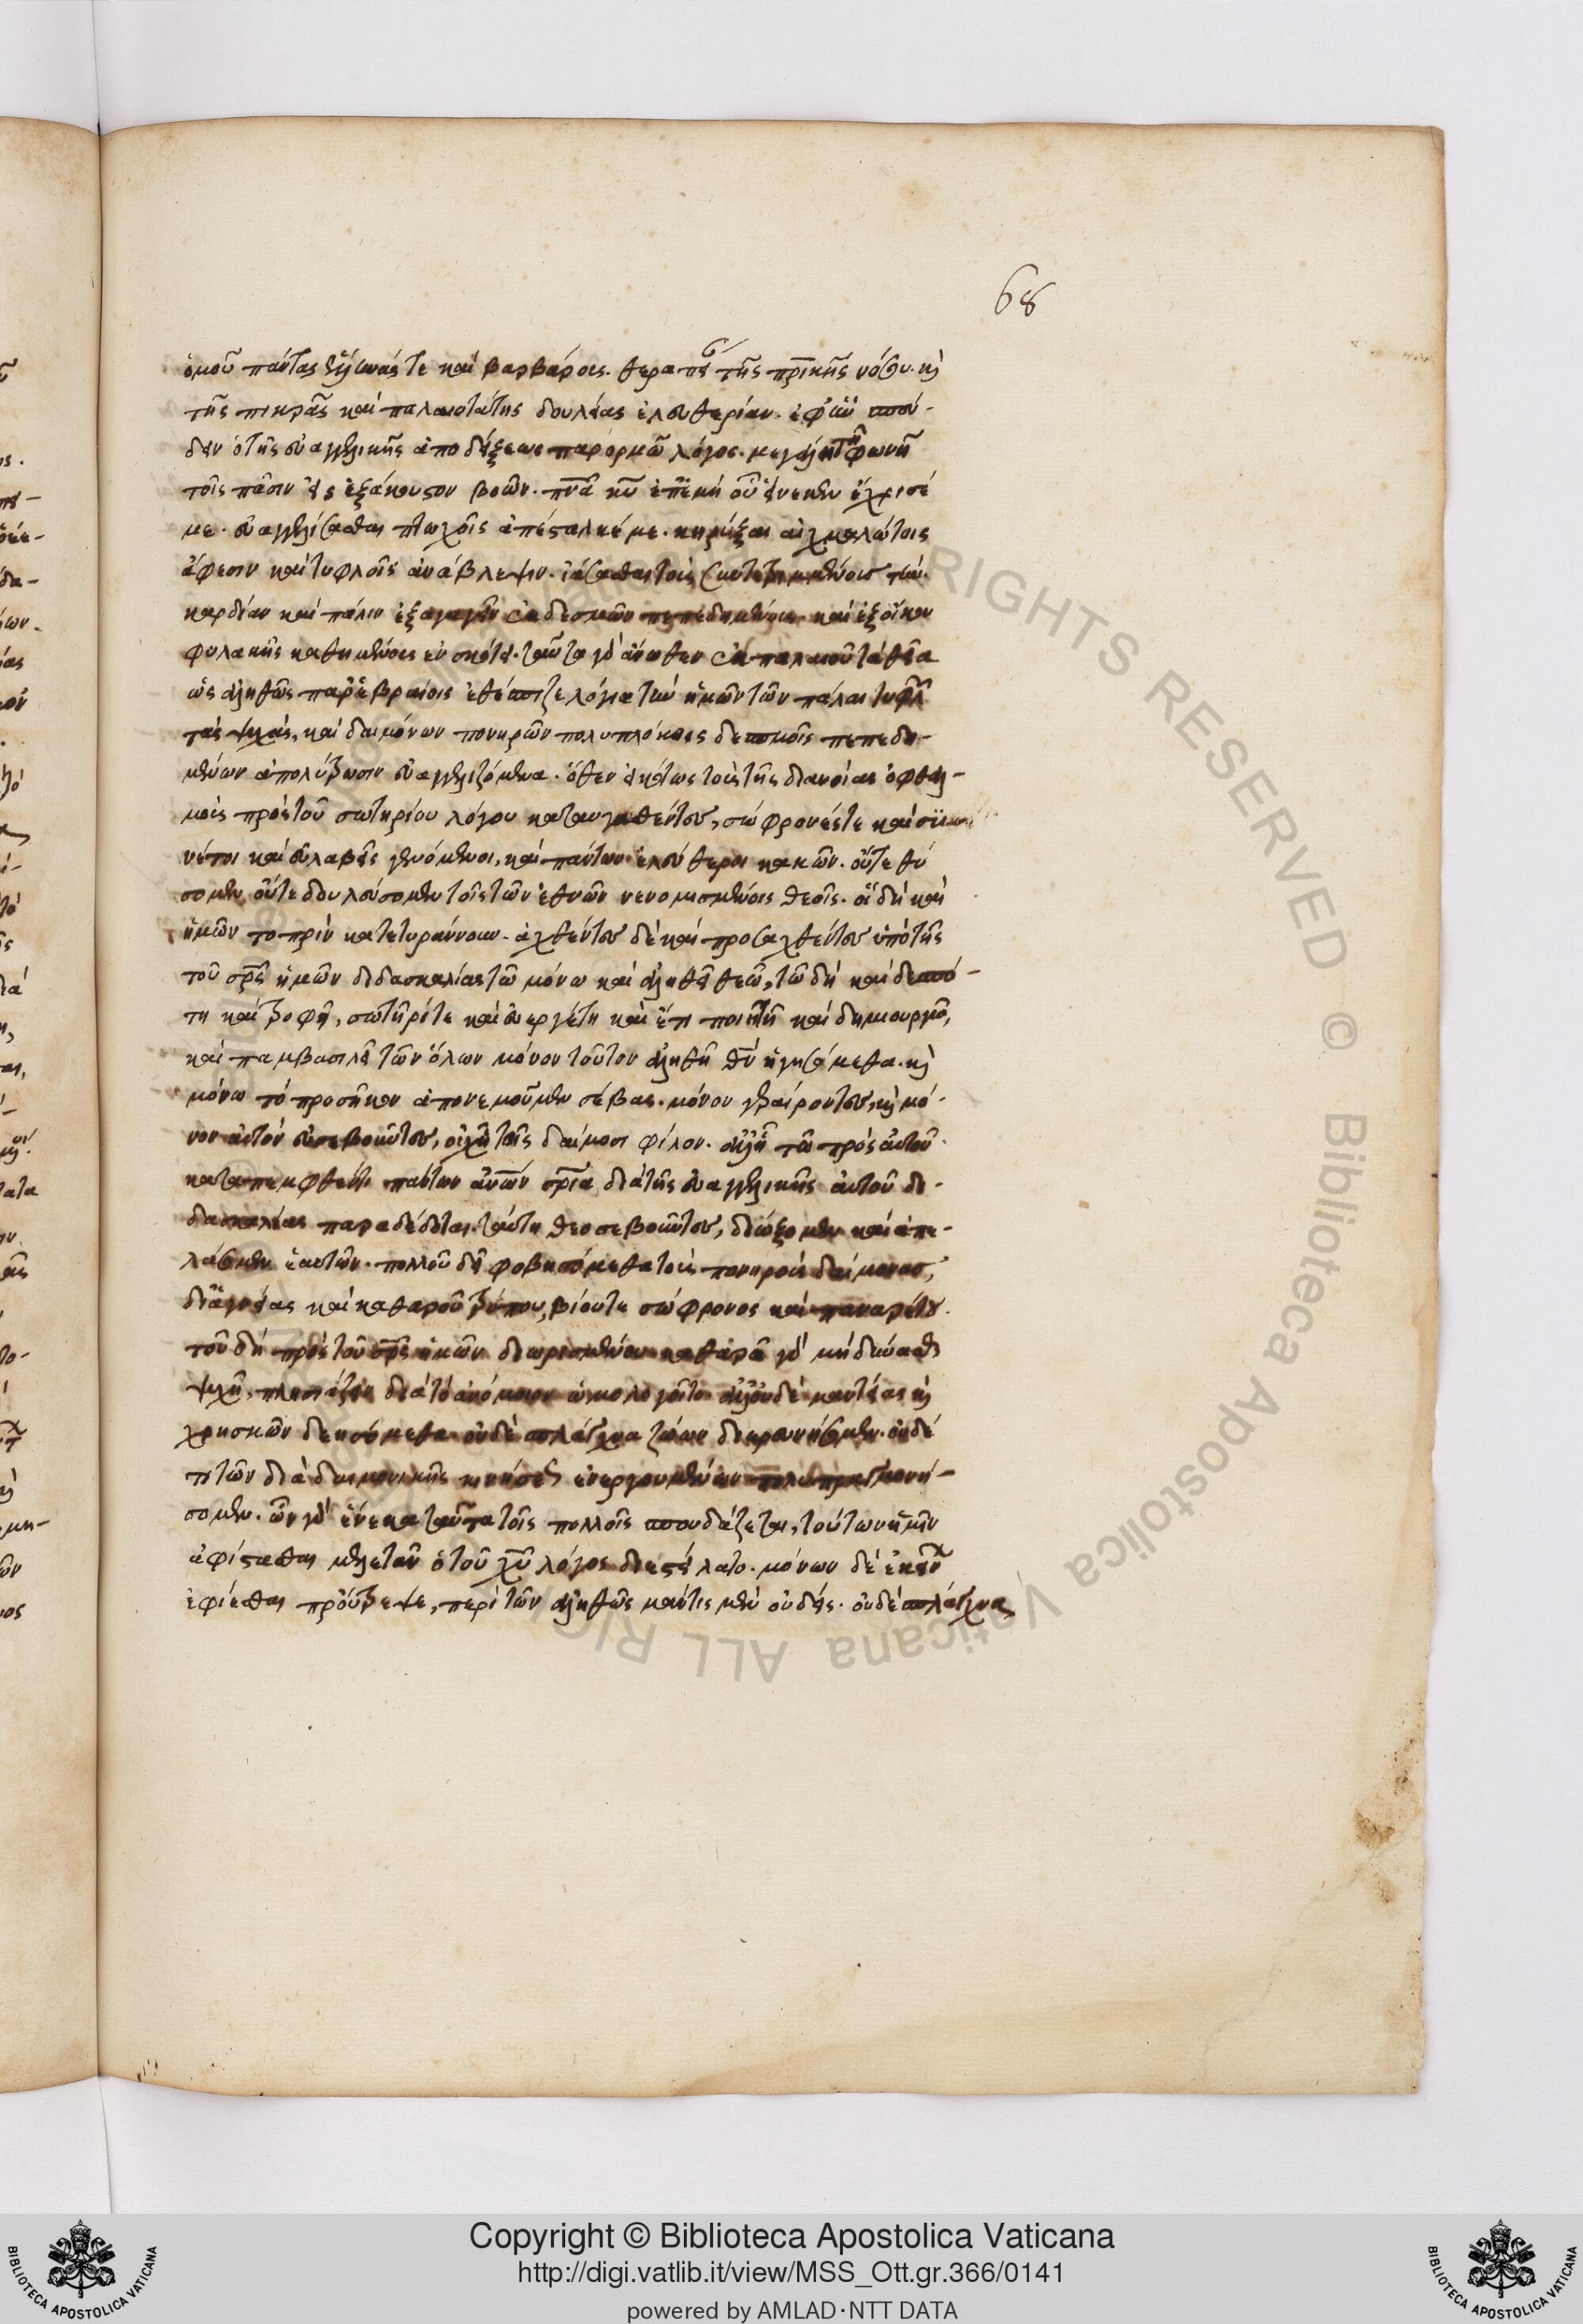 68
ὁμοῦ πάντας ἕλληνάς τε καὶ βαρβάρους. θεραπεύει τῆς πρικῆς νόσου. καὶ
τῆς πικρᾶς καὶ παλαιοτάτης δουλείας ἐλευθερίαν. ἐφ' ἣν σπεύ-
δειν ὁ τῆς εὐαγγελικῆς ἀποδείξεως παρορμῶν λόγος. μεγάλῃ τῇ φωνῇ
τοῖς πᾶσιν εἰς ἐξάκουστον βοῶν. πνα κυ ἐπ' ἐμὲ οὗ εἵνεκεν ἔχρισέ
με. εὐαγγελίσασθαι πτωχοῖς ἀπέσταλκέ με. κηρύξαι αἰχμαλώτοις
ἄφεσιν καὶ τυφλοῖς ἀνάβλεψιν. ἰάσασθαι τοὺς συντετριμμένους τὴν
καρδίαν καὶ πάλιν ἐξαγαγεῖν ἐκ δεσμῶν πεπεδημένους. καὶ ἐξ οἴκου
φυλακῆς καθημένους ἐν σκότει. ταῦτα γὰρ ἄνωθεν ἐκ παλαιοῦ τὰ θεῖα
ὡς ἀληθῶς παρ' ἑβραίοις ἐθέσπιζε λόγια τῶν ἡμῶν τῶν πάλαι τυφλῶν
τὰς ψυχάς, καὶ δαιμόνων πονηρῶν πολυπλόκοις δεσμοῖς πεπεδη-
μένων ἀπολύτρωσιν εὐαγγελιζόμενα. ὅθεν εἰκότως τοὺς τῆς διανοίας ὀφθαλ-
μοὺς πρὸς τοῦ σωτηρίου λόγου καταυγασθέντες, σώφρονές τε καὶ
νέτοι καὶ εὐλαβεῖς γενόμενοι, καὶ πάντων ἐλεύθεροι κακῶν. οὔτε θύ
σομεν, οὔτε δουλεύσομεν τοῖς τῶν ἐθνῶν νενομισμένοις θεοῖς. οἳ δὴ καὶ
ἡμῶν τὸ πρὶν κατετυράννουν. ἀχθέντες δὲ καὶ προσαχθέντες ὑπὸ τῆς
τοῦ σρς ἡμῶν διδασκαλίας τῷ μόνῳ καὶ ἀληθεῖ θεῷ, τῷ δὴ καὶ δεσπό-
τῃ καὶ τροφῇ, σωτῆρί τε καὶ εὐεργέτῃ καὶ ἔτι ποιητῇ καὶ δημιουργῷ,
καὶ παμβασιλεῖ τῶν ὅλων μόνον τοῦτον ἀληθῆ θν ἡγησάμεθα. καὶ
μόνῳ τὸ προσῆκον ἀπονεμοῦμεν σέβας. μόνον γεραίροντες, καὶ μό-
νον αὐτὸν εὐσεβοῦντες, οὐχ ᾗ τοῖς δαίμοσι φίλον. ἀλλ' ᾗ τῷ πρὸς αὐτοῦ
καταπεμφθέντι πάντων ἀνων σρια διὰ τῆς εὐαγγελικῆς αὐτοῦ δι-
δασκαλίας παραδέδοται. ταύτῃ θεοσεβοῦντες, διώξομεν καὶ ἀπε-
λάσομεν ἑαυτῶν. πολλοῦ δεῖ φοβησόμεθα τοὺς πονηροὺς δαίμονας,
δι' ἁγνείας καὶ καθαροῦ τρόπου, βίου τε σώφρονος καὶ παναρέτου
τοῦ δὴ πρὸς τοῦ σρς ἡμῶν διωρισμένου καθαρᾷ γὰρ μὴ δύνασθαι
ψυχῇ, πλησιάζειν διὰ τὸ ἀνόμοιον ὡμολογεῖτο ἀλλ' οὐδὲ μαντείας καὶ
χρησμῶν δεησόμεθα οὐδὲ σπλάγχνα ζώων διερευνήσομεν. οὐδέ
τι τῶν διὰ δαιμονικῆς κινήσεως ἐνεργουμένων πολυπραγμονή-
σομεν. ὧν γὰρ ἕνεκα ταῦτα τοῖς πολλοῖς σπουδάζεται, τούτων ἡμῖν
ἀφίστασθαι μελετᾶν ὁ τοῦ χυ λόγος διεστείλατο. μόνων δὲ ἐκείνων
ἐφίεσθαι προύτρεψε, περὶ τῶν ἀληθῶς μάντις μὲν οὐδείς. οὐδὲ σπλάγχνα
Copyright © Biblioteca Apostolica Vaticana
http://digi.vatlib.it/view/MSS_Ott.gr.366/0141
powered by AMLAD·NTT DATA